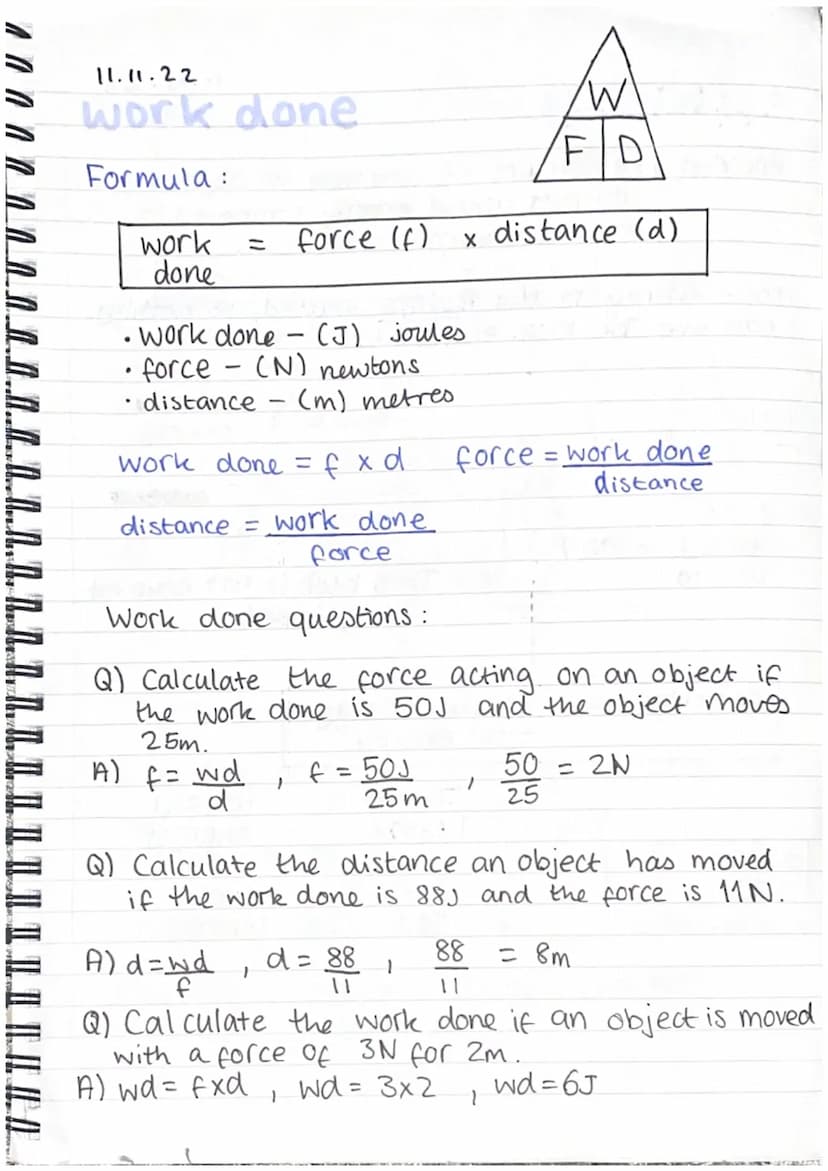 11.11.22
work done
W
F D
Formula:
work = force (f) x distance (d)
done
• work done - (J) joules
• force - (N) newtons
• distance - (m) metres
work done = f x d force = work done
distance
distance = work done
force
Work done questions:
Q) Calculate the force acting on an object if
the work done is 50J and the object moves
25m.
A) f = wd , f = 50J , 50 = 2N
d 25m 25
Q) Calculate the distance an object has moved
if the work done is 88J and the force is 11N.
A) d = wd , d = 88 , 88 = 8m
f 11 11
Q) Calculate the work done if an object is moved
with a force of 3N for 2m.
A) wd = f x d , wd = 3 x 2 , wd = 6J